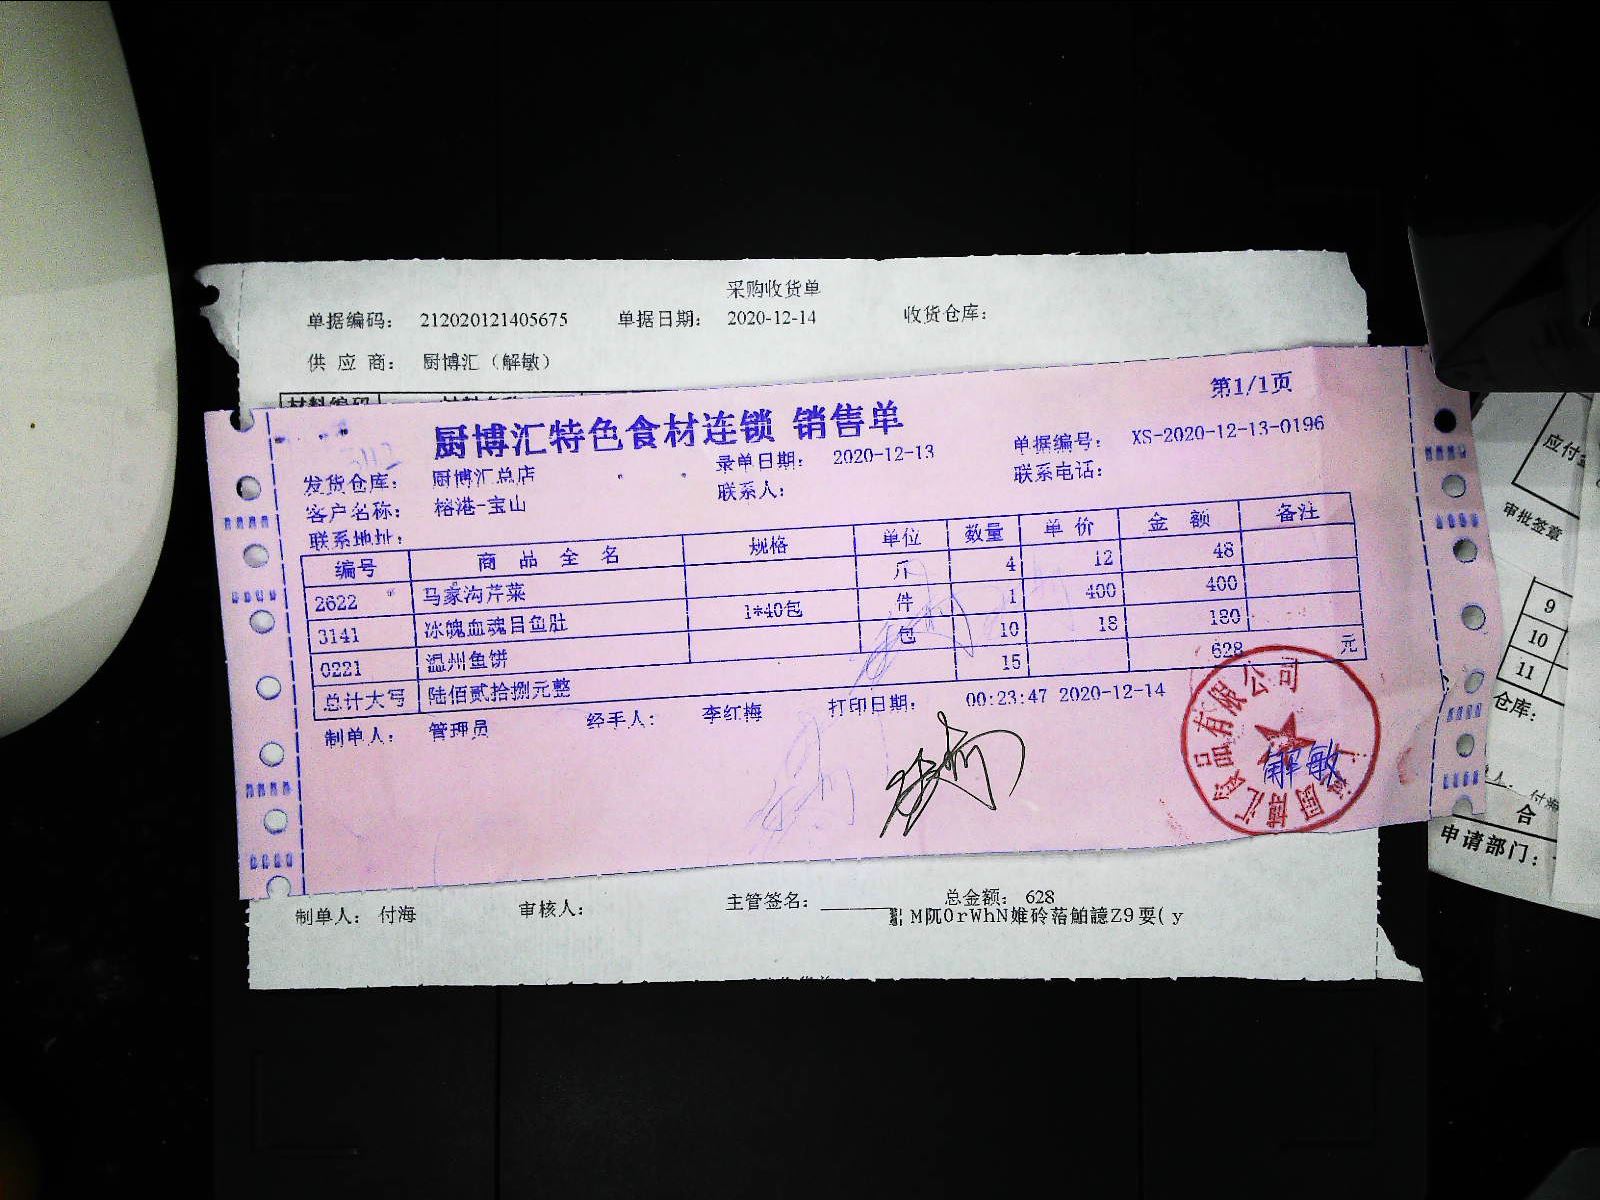 采购收货单
单据编码： 212020121405675 单据日期： 2020-12-14 收货仓库：
供 应 商： 厨博汇（解敏）
材料编码
第1/1页
厨博汇特色食材连锁 销售单
发货仓库： 厨博汇总店 录单日期： 2020-12-13 单据编号： XS-2020-12-13-0196
客户名称： 榕港-宝山 联系人： 联系电话：
联系地址：
编号 商 品 全 名 规格 单位 数量 单 价 金 额 备注
2622 马家沟芹菜 斤 4 12 48
3141 冰魄血魂目鱼肚 1*40包 件 1 400 400
0221 温州鱼饼 包 10 18 180
总计大写 陆佰贰拾捌元整 15 628 元
制单人： 管理员 经手人： 李红梅 打印日期： 00:23:47 2020-12-14
厨博汇食品有限公司
解敏
制单人： 付海 审核人： 主管签名： 总金额： 628
应付
审批签章
9
10
11
仓库：
付海
合
申请部门：